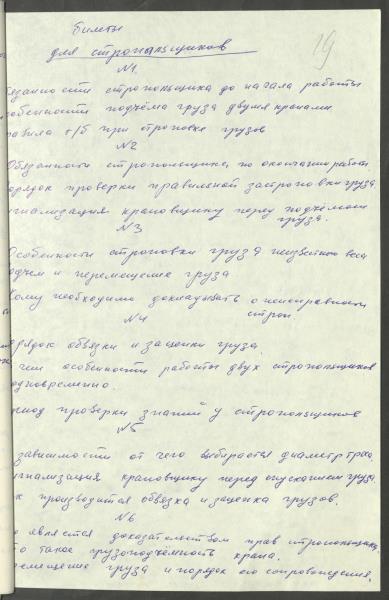 Билеты
19
для стропальщиков
N1
бязанности стропольщика до начала работы
собенности подъёма груза двумя кранами
равила т/б при строповке грузов
N2
Обязанности стропольщика по окончании работ
орядок проверки правильной застроповки груза
игнализация крановщику перед подъёмом груза.
N3
Особенности строповки груза неизвестного веса
одъем и перемещение груза
Кому необходимо докладывать о неисправности строп.
N4
рядок обвязки и зацепки груза.
чем особенности работы двух стропольщиков
одновременно.
риод проверки знаний у стропольщиков
N5
зависимости от чего выбирается диаметр троса.
игнализация крановщику перед опусканием груза.
к производится обвязка и зацепка грузов.
N6
о является доказательством прав стропольщика.
то такое грузоподъёмность крана.
ремещение груза и порядок его сопровождения.